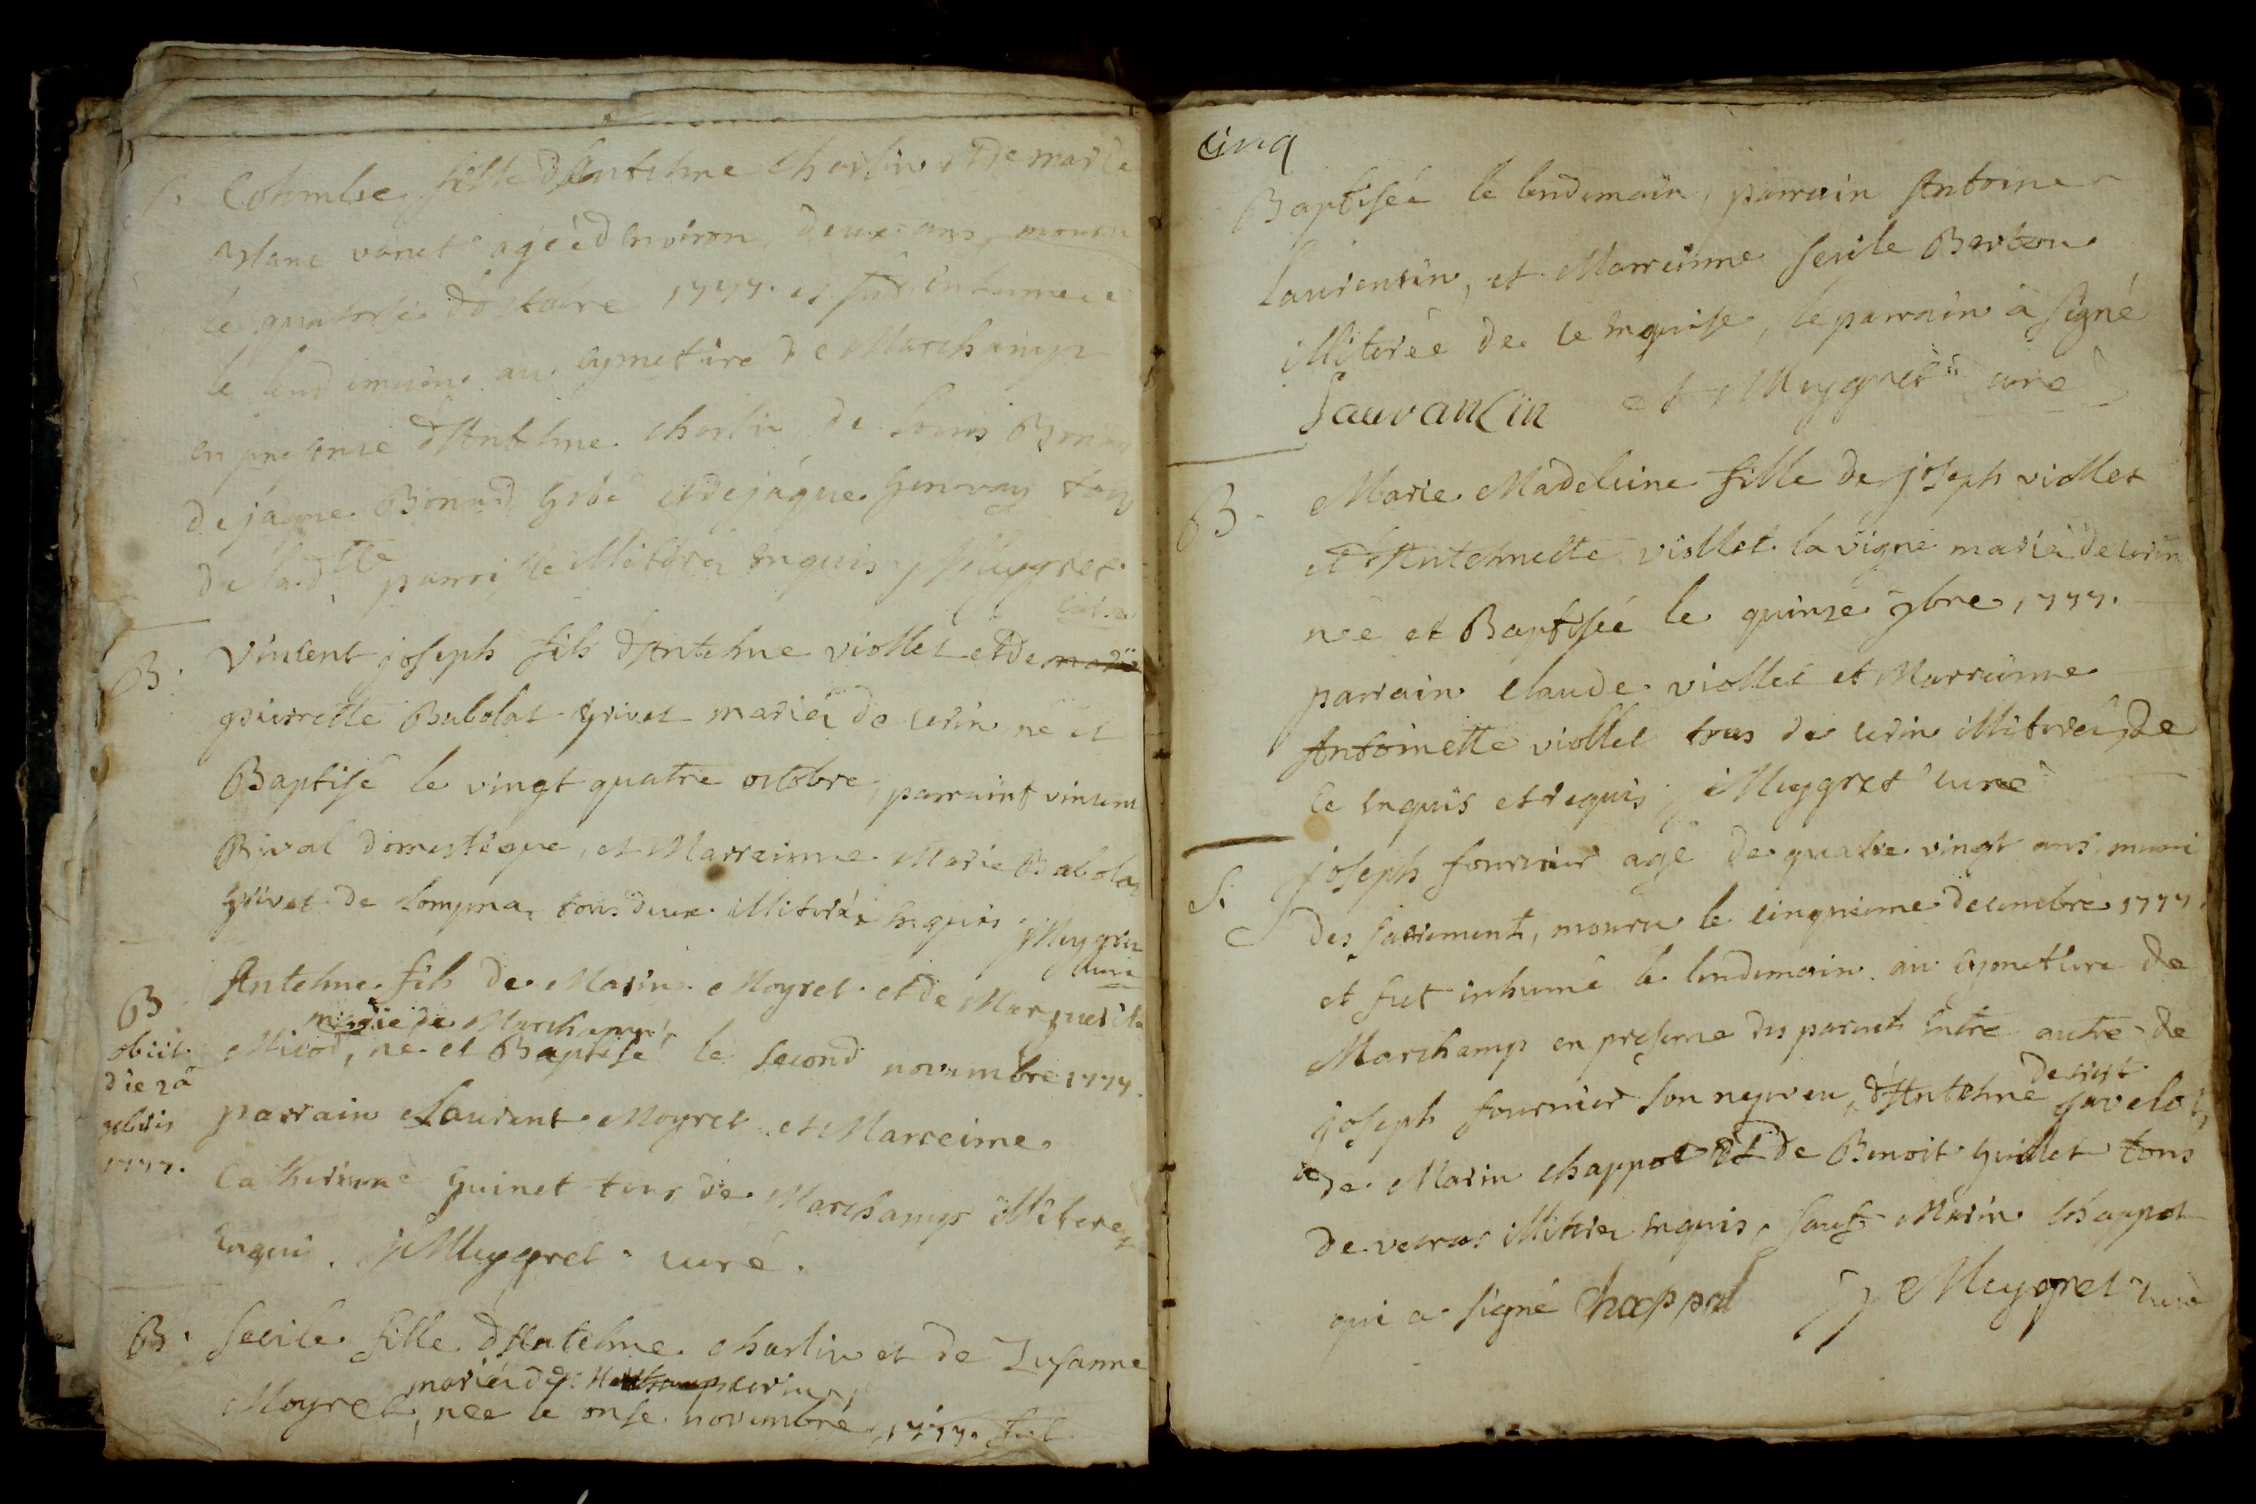 S. Colombe fille d'Antelme Charlin et de marie
agéé d'environ deux ans, mouru
le quatorse d'octobre 1777. et fut inhumeé
le lendemain au cymetiere de Marchamps
en presence d'Antelme Charlin de Louis
de jaque Bonard et de jâque tous
de la dtte parroisse illitérés enquis, j Meygret
curé
B. Vincent joseph fils d'Antelme viollet et de marie
pierrette Babolat Grivet mariés de cerin né et
Baptisé le vingt quatre octobre, parraint vincent
Rival domestique, et Marraine Marie Babolat
grivet de Lompnas tous deux illitérés enquis j Meygret
curé
B Antelme fils de Marin Moyret et de Marguerite
mariés de Marchamps
Micod, né et Baptisé le second novembre 1777.
obiit
die 2a
9bris
1777.
parrain Laurent Moyret et Marreine
Catherinne Guinet tous de Marchamps illiterés
enqui. j Meygret curé.
B. Secile fille d'Antelme Charlin et de Susanne
mariés de Marchamps cerin
Moyret, née le onse novembre 1777. fut
cinq
Baptiséé le lendemain, parrain Antoine
Laurensin, et Marreinne Secile
illiteréé de ce enquise, le parrain à signé
Lauranćin et j Meygret curé
B. Marie Madeleine fille de joseph viollet
et d'Antelmette viollet la vigne mariés de cerin
néé et Baptiséé le quinze 9bre 1777.
parrain Claude viollet et Marreinne
Antoinette viollet tous de cerin illiterés, de
ce enquis et requis, j Meygret curé
S. joseph fournier agé de quatre vingt ans muni
des sacrements, mouru le cinquieme decembre 1777.
et fut inhumé le lendemain au cymetiere de
Marchamps en presence des parents entre autre de
joseph fournier son neyveu, d'Antelme javelot,
de Marin chappot et de Benoit Guillet tous
de illitéres enquis, sauf Marin Chappot
qui a signé chappot j Meygret curé